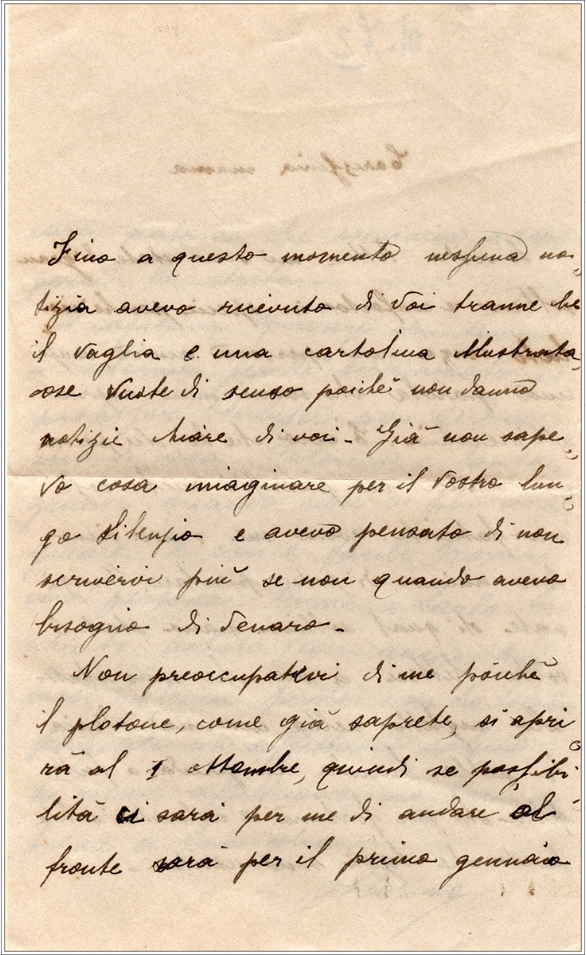 Fino a questo momento nessuna no-
tizia avevo ricevuto di voi tranne che
il vaglia e una cartolina illustrata,
cose vuste di senso poichè non danno
notizie chiare di voi - Già non sape-
vo cosa imaginare per il vostro lun-
go silenzio e avevo pensato di non
scrivervi più se non quando avevo
bisogno di denaro -
Non preoccupatevi di me poichè
il plotone, come già saprete, si apri-
rà al 1 ottombre, quindi se possibi-
lità ci sarà per me di andare al
fronte sarà per il primo gennaio